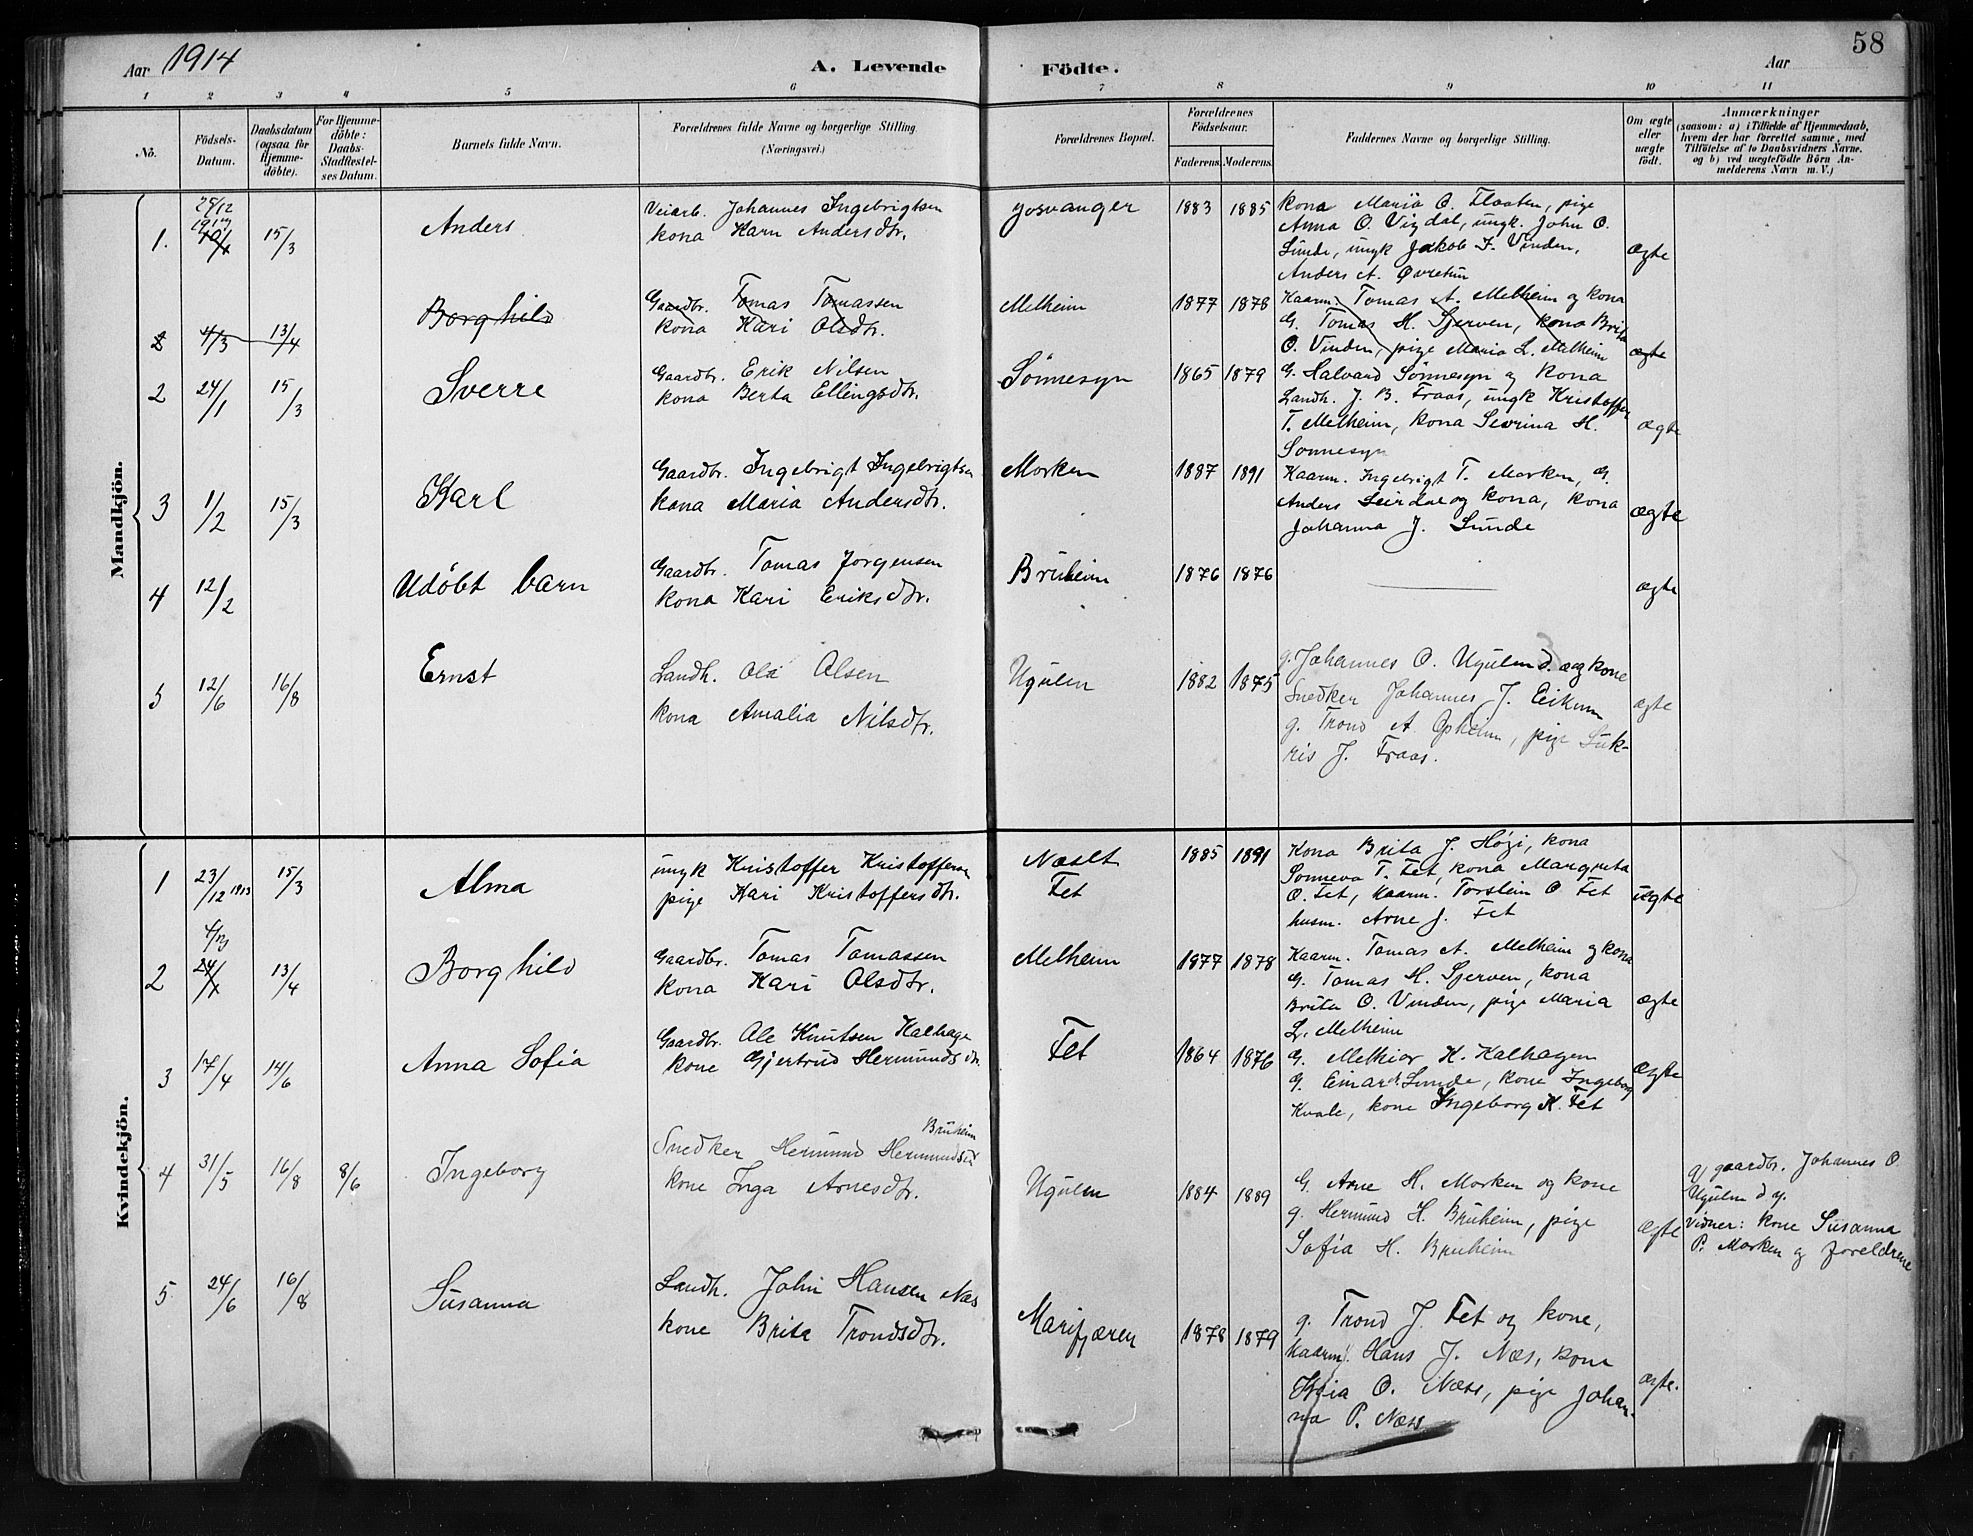 Aar 1914
A. Levende Födte.
Aar
58
1 2 3 4 5 6 7 8 9 10 11
No.
Födsels-Datum.
Daabsdatum (ogsaa for Hjemme-döbte).
For Hjemme-döbte: Daabs-Stadfæstel-ses Datum.
Barnets fulde Navn.
Forældrenes fulde Navne og borgerlige Stilling.
(Næringsvei.)
Forældrenes Bopæl.
Forældrenes Födselsaar.
Faderens. Moderens.
Faddernes Navne og borgerlige Stilling.
Om ægte eller uægte födt.
Anmærkninger
(saasom: a) i Tilfælde af Hjemmedaab,
hvem der har forrettet samme, med
Tilföielse af to Daabsvidners Navne.
og b) ved uægtefödte Börn An-
melderens Navn m. V.)
Mandkjön.
1. 15/3 Anders
Veiarb. Johannes Ingebrigtsen
kona Kari Andersdtr.
1883 1885
Kona Maria O. Flaaten, pige
Anna O. Vigdal, ungk. John O.
Sunde, ungk Jakob I. Vinden,
Anders A. Øvretun
ægte
2 4/3 13/4 Borghild
Gaardbr. Tomas Tomassen
kona Kari Olsdtr.
Melheim
1877 1878
Kaarm. Tomas A. Melheim og kona
G. Tomas H. Sjerven, kona Brita
O. Vinden, pige Maria L. Melheim
ægte
2 24/1 15/3 Sverre
Gaardbr. Erik Nilsen
kona Berta Ellingsdtr.
Sønnesyn
1865 1879
G. Halvard Sønnesyn og kona
Landh. J. B. Fraas, ungk Kristoffer
T. Melheim, kona Sevrina H.
Sønnesyn
ægte
3 1/2 15/3 Karl
Gaardbr. Ingebrigt Ingebrigtsen
kona Maria Andersdtr.
Morken
1887 1891
Kaarm. Ingebrigt T. Morken, G.
Anders Leirdal og kona, kona
Johanna J. Sunde
ægte
4 12/2 Udøbt barn
Gaardbr. Tomas Jørgensen
kona Kari Eriksdtr.
Bruheim
1876 1876
ægte
5 12/6 16/8 Ernst
Landh. Ola Olsen
kona Amalia Nilsdtr.
Ugulen
1882 1875
g. Johannes O. Ugulen d. æ og kone
Snedker Johannes J. Eikum
g. Trond A. Opheim, pige Suk-
ris J. Fraas.
ægte
Kvindekjön.
1 23/12 1913 15/3 Alma
ungk Kristoffer Kristoffersen
pige Kari Kristoffersdtr.
Fet
1885 1891
Kona Brita J. Høgi, kona
Sonneva T. Fet, kona Margreta
O. Fet, Kaarm. Torstein O. Fet
husm. Arne J. Fet
uegte
2 13/4 Borghild
Gaardbr. Tomas Tomassen
kona Kari Olsdtr.
Melheim
1877 1878
Kaarm. Tomas A. Melheim og kona
G. Tomas H. Sjerven, kona
Brita O. Vinden, pige Maria
L. Melheim
ægte
3 17/4 14/6 Anna Sofia
Gaardbr. Ole Knutsen Kalhage
kone Gjertrud Hermundsdtr.
Fet
1864 1876
G. Melkior K. Kalhagen
g. Einar Sunde, kone Ingeborg
Kvale, kone Ingeborg K. Fet
ægte
4 31/5 16/8 8/6 Ingeborg
Bruheim
Snedker Hermund Hermundsen
kone Inga Arnesdtr.
Ugulen
1884 1889
G. Arne H. Morken og kone
g. Hermund H. Bruheim, pige
Sofia H. Bruheim
ægte
af gaardbr. Johannes O.
Ugulen d y.
Vidner: kone Susanna
P. Morken og foreldrene
5 24/6 16/8 Susanna
Landh. John Hansen Næs
kone Brita Trondsdtr.
Marifjæren
1878 1879
g. Trond J. Fet og kone,
kaarm. Hans J. Næs, kona
O. Næss, pige Johan-
na P. Næss
ægte.